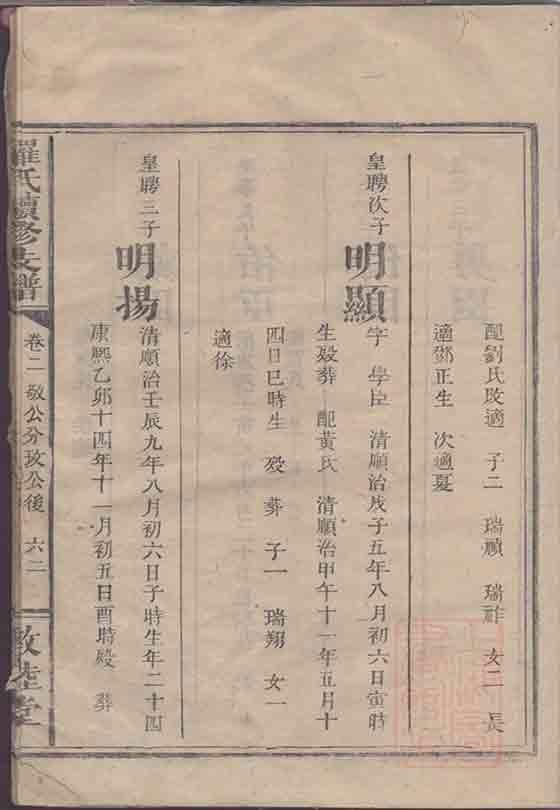 配劉氏改適 子二 瑞禎 瑞祚 女二 長
適鄧正生 次適夏
皇聘次子
明顯
字 學臣 清順治戊子五年八月初六日寅時
生殁葬 配黃氏 清順治甲午十一年五月十
四日巳時生 殁葬 子一 瑞翔 女一
適徐
皇聘三子
明揚
清順治壬辰九年八月初六日子時生年二十四
康熙乙卯十四年十一月初五日酉時殁 葬
羅氏續修支譜
卷二 敬公分玫公後 六二
敦睦堂